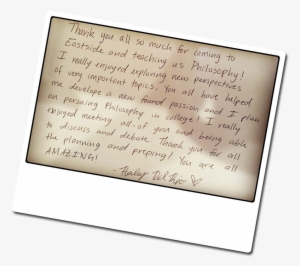 Thank you all so much for coming to
Eastside and teaching us Philosophy!
I really enjoyed exploring new perspectives
of very important topics. You all have helped
me develope a new found passion and I plan
on pursuing Philosophy in college! I really
enjoyed meeting all of you and being able
to discuss and debate. Thank you for all
the planning and preping! You are all
AMAZING!
- Haley